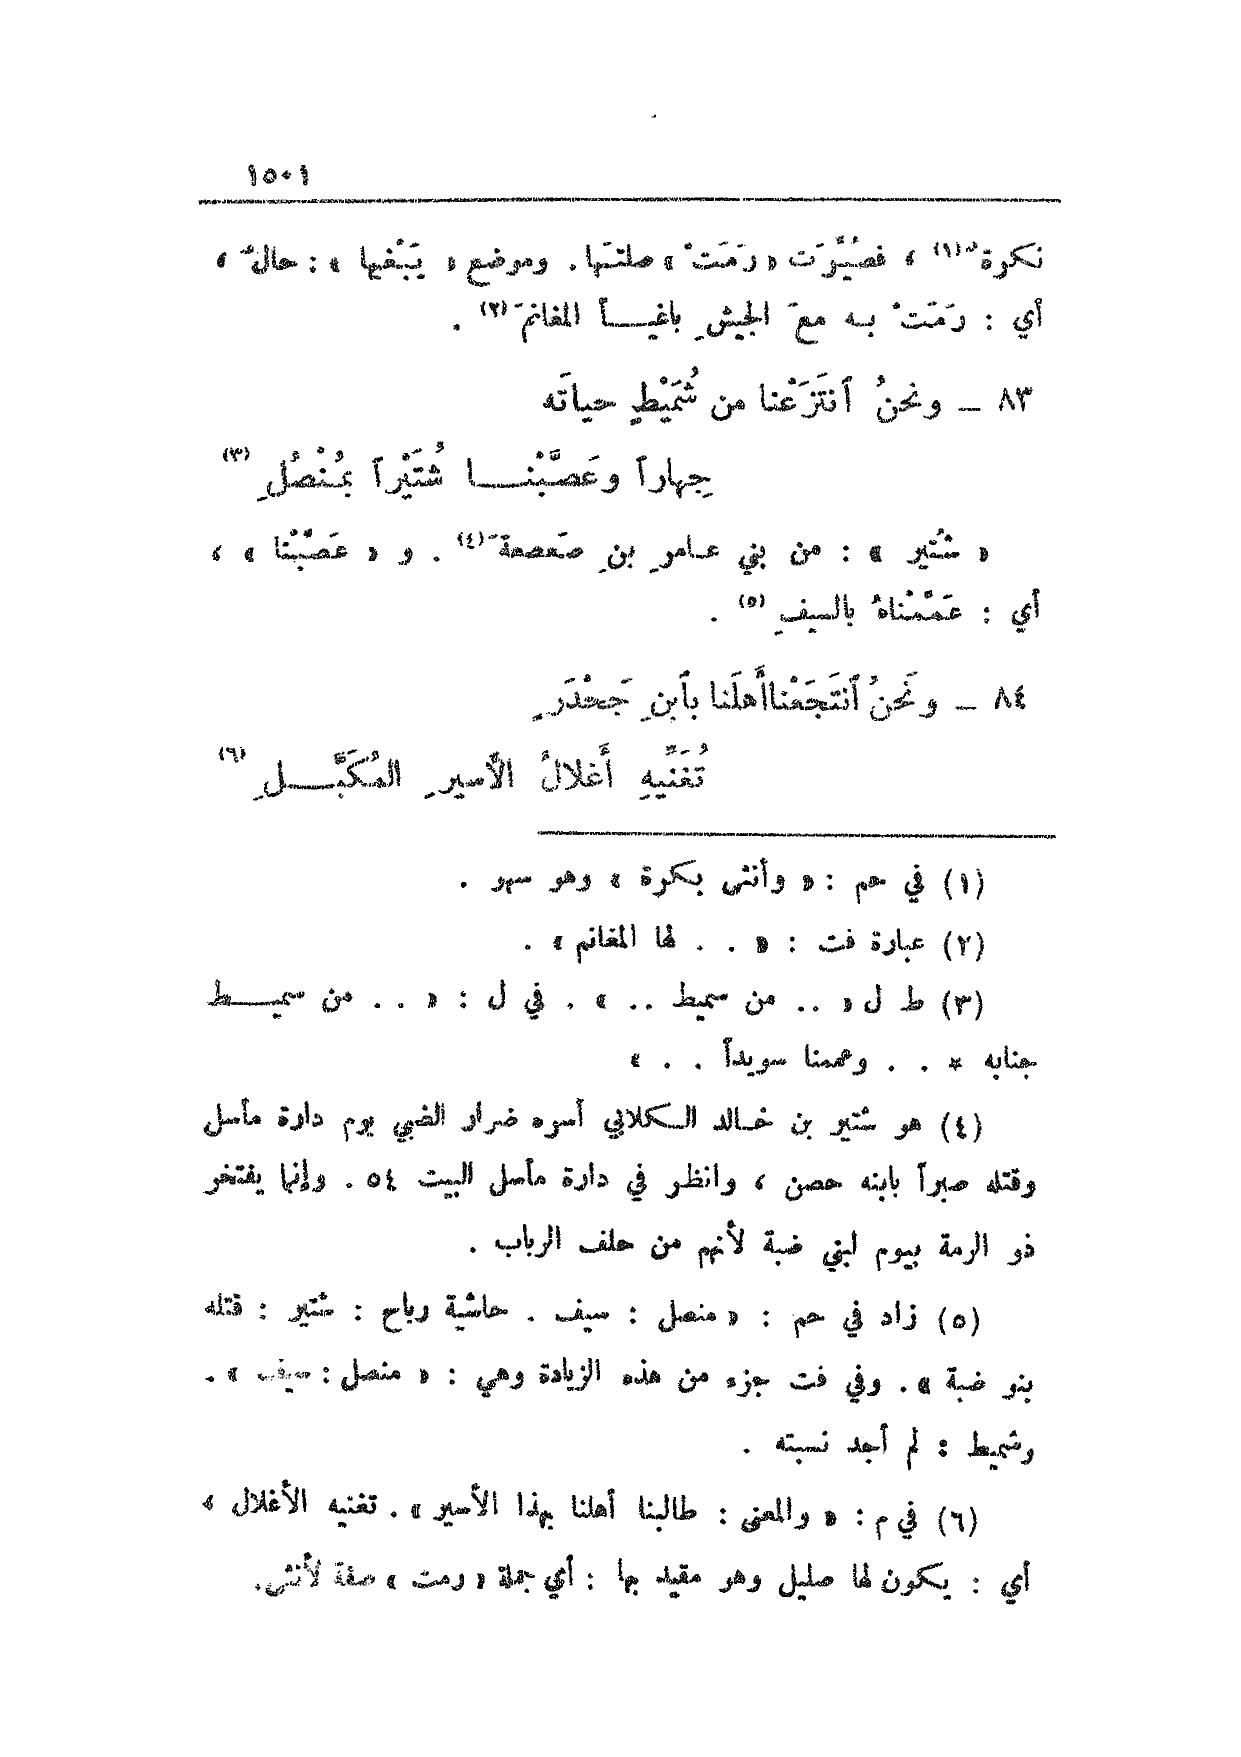 ١٥٠١
نكرةٌ (١) ، فصُيِّرَت « رَمَتْ » صلتَها . وموضع « يَبْغيها » : حالٌ ،
أي : رَمَتْ به معَ الجيشِ باغيـاً المغانمَ (٢) .
٨٣ – ونحنُ ٱنتَزَعْنا من شُمَيْطٍ حياتَه
جِهاراً وعَصَّبْنـا شُتَيْراً بمُنْصُلِ (٣)
« شُتير » : من بني عامرِ بنِ صَعصعةَ (٤) . و « عَصَّبْنا » ،
أي : عَمَّمْناهُ بالسيفِ (٥) .
٨٤ – ونَحنُ ٱنتَجَعْنا أَهلَنا بٱبنِ جَحْدَرٍ
تُغَنِّيهِ أَغلالُ الأَسيرِ المُكَبَّـلِ (٦)
(١) في حم : « وأنثى بكرة » وهو سهو .
(٢) عبارة فت : « . . لها المغانم » .
(٣) ط ل « .. من سميط .. » . في ل : « . . من سميـط
جنابه * . . وعممنا سويداً . . »
(٤) هو شتير بن خالد الكلابي أسره ضرار الضبي يوم دارة مأسل
وقتله صبراً بابنه حصن ، وانظر في دارة مأسل البيت ٥٤ . وإنما يفتخر
ذو الرمة بيوم لبني ضبة لأنهم من حلف الرباب .
(٥) زاد في حم : « منصل : سيف . حاشية رباح : شتير : قتله
بنو ضبة » . وفي فت جزء من هذه الزيادة وهي : « منصل : سيف » .
وشميط : لم أجد نسبته .
(٦) في م : « والمعنى : طالبنا أهلنا بهذا الأسير » . تغنيه الأغلال »
أي : يكون لها صليل وهو مقيد بها : أي جملة « رمت » صفة لأنثى .